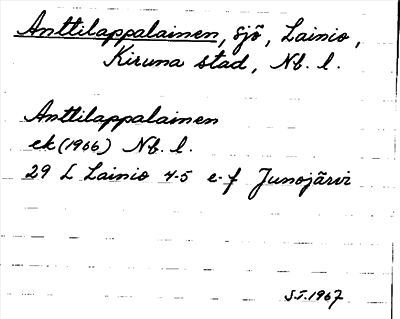 Anttilappalainen, sjö, Lainio,
Kiruna stad, Nb. l.
Anttilappalainen
ek (1966) Nb. l.
29 L Lainio 4-5 e-f Junojärvi
S.J. 1967